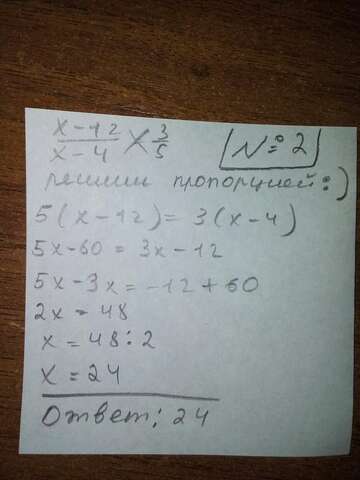 x-12/x-4 × 3/5 №2
решим пропорцией:)
5(x-12) = 3(x-4)
5x-60 = 3x-12
5x-3x = -12+60
2x = 48
x = 48:2
x = 24
Ответ: 24